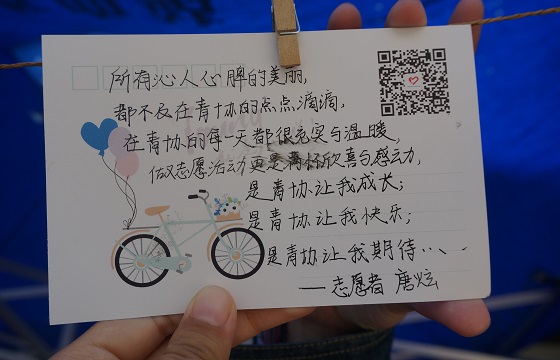 所有沁人心脾的美丽,
都不及在青协的点点滴滴,
在青协的每一天都很充实与温暖,
做志愿活动更是满怀欣喜与感动,
是青协让我成长;
是青协让我快乐;
是青协让我期待……
——志愿者 唐炫